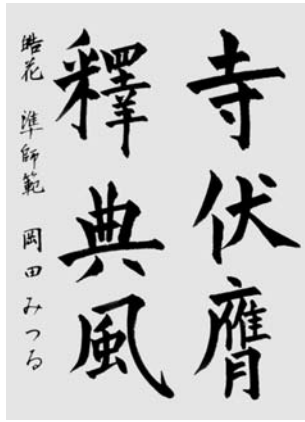 寺伏膺
釋典風
皓花 準師範 岡田みつる